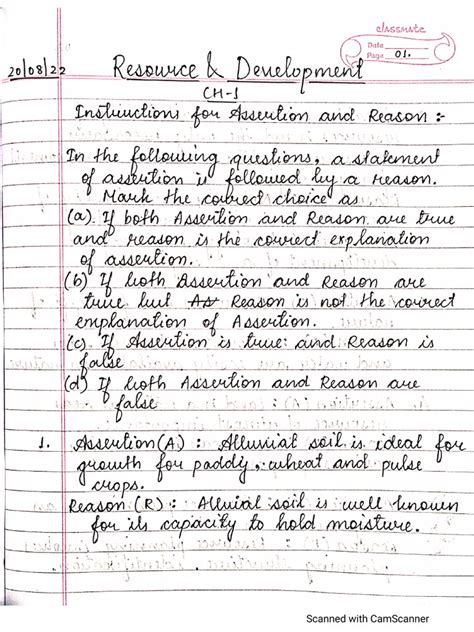 classmate
Date
Page 01.
20/08/22 Resource & Development
CH-1
Instructions for Assertion and Reason :-
In the following questions, a statement
of assertion is followed by a reason.
Mark the correct choice as
(a). If both Assertion and Reason are true
and reason is the correct explanation
of assertion.
(b) If both Assertion and Reason are
true but As Reason is not the correct
explanation of Assertion.
(c) If Assertion is true and Reason is
false
(d) If both Assertion and Reason are
false
1. Assertion (A) : Alluvial soil is ideal for
growth for paddy, wheat and pulse
crops.
Reason (R) : Alluvial soil is well known
for its capacity to hold moisture.
Scanned with CamScanner